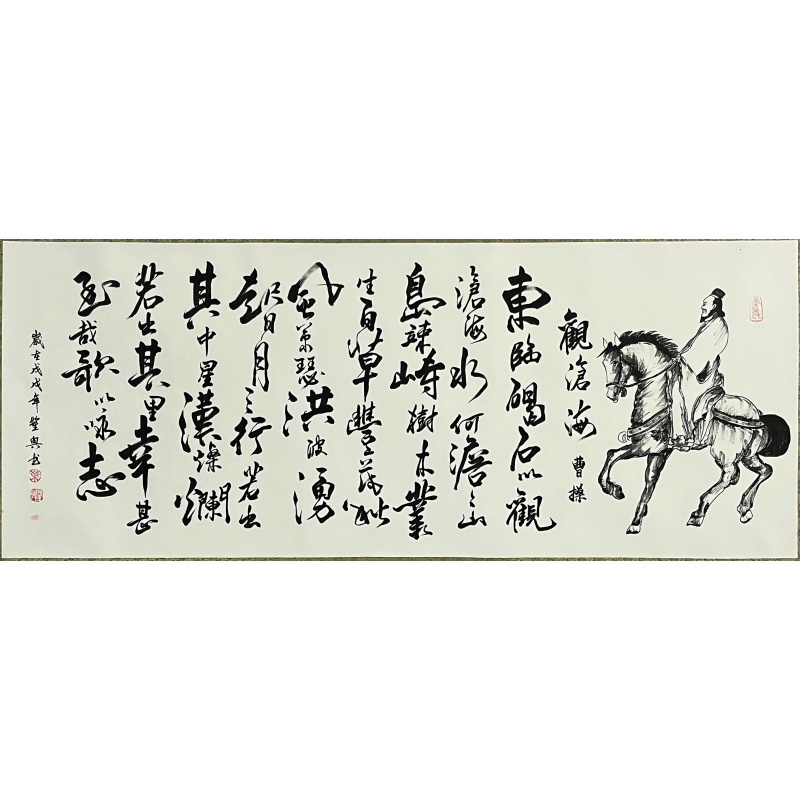 觀滄海
曹操
東臨碣石以觀
滄海水何澹々山
島竦峙樹木叢
生百草豐茂秋
風蕭瑟洪波湧
起日月之行若出
其中星漢燦爛
若出其里幸甚
至哉歌以咏志
歲在戊戌年興书